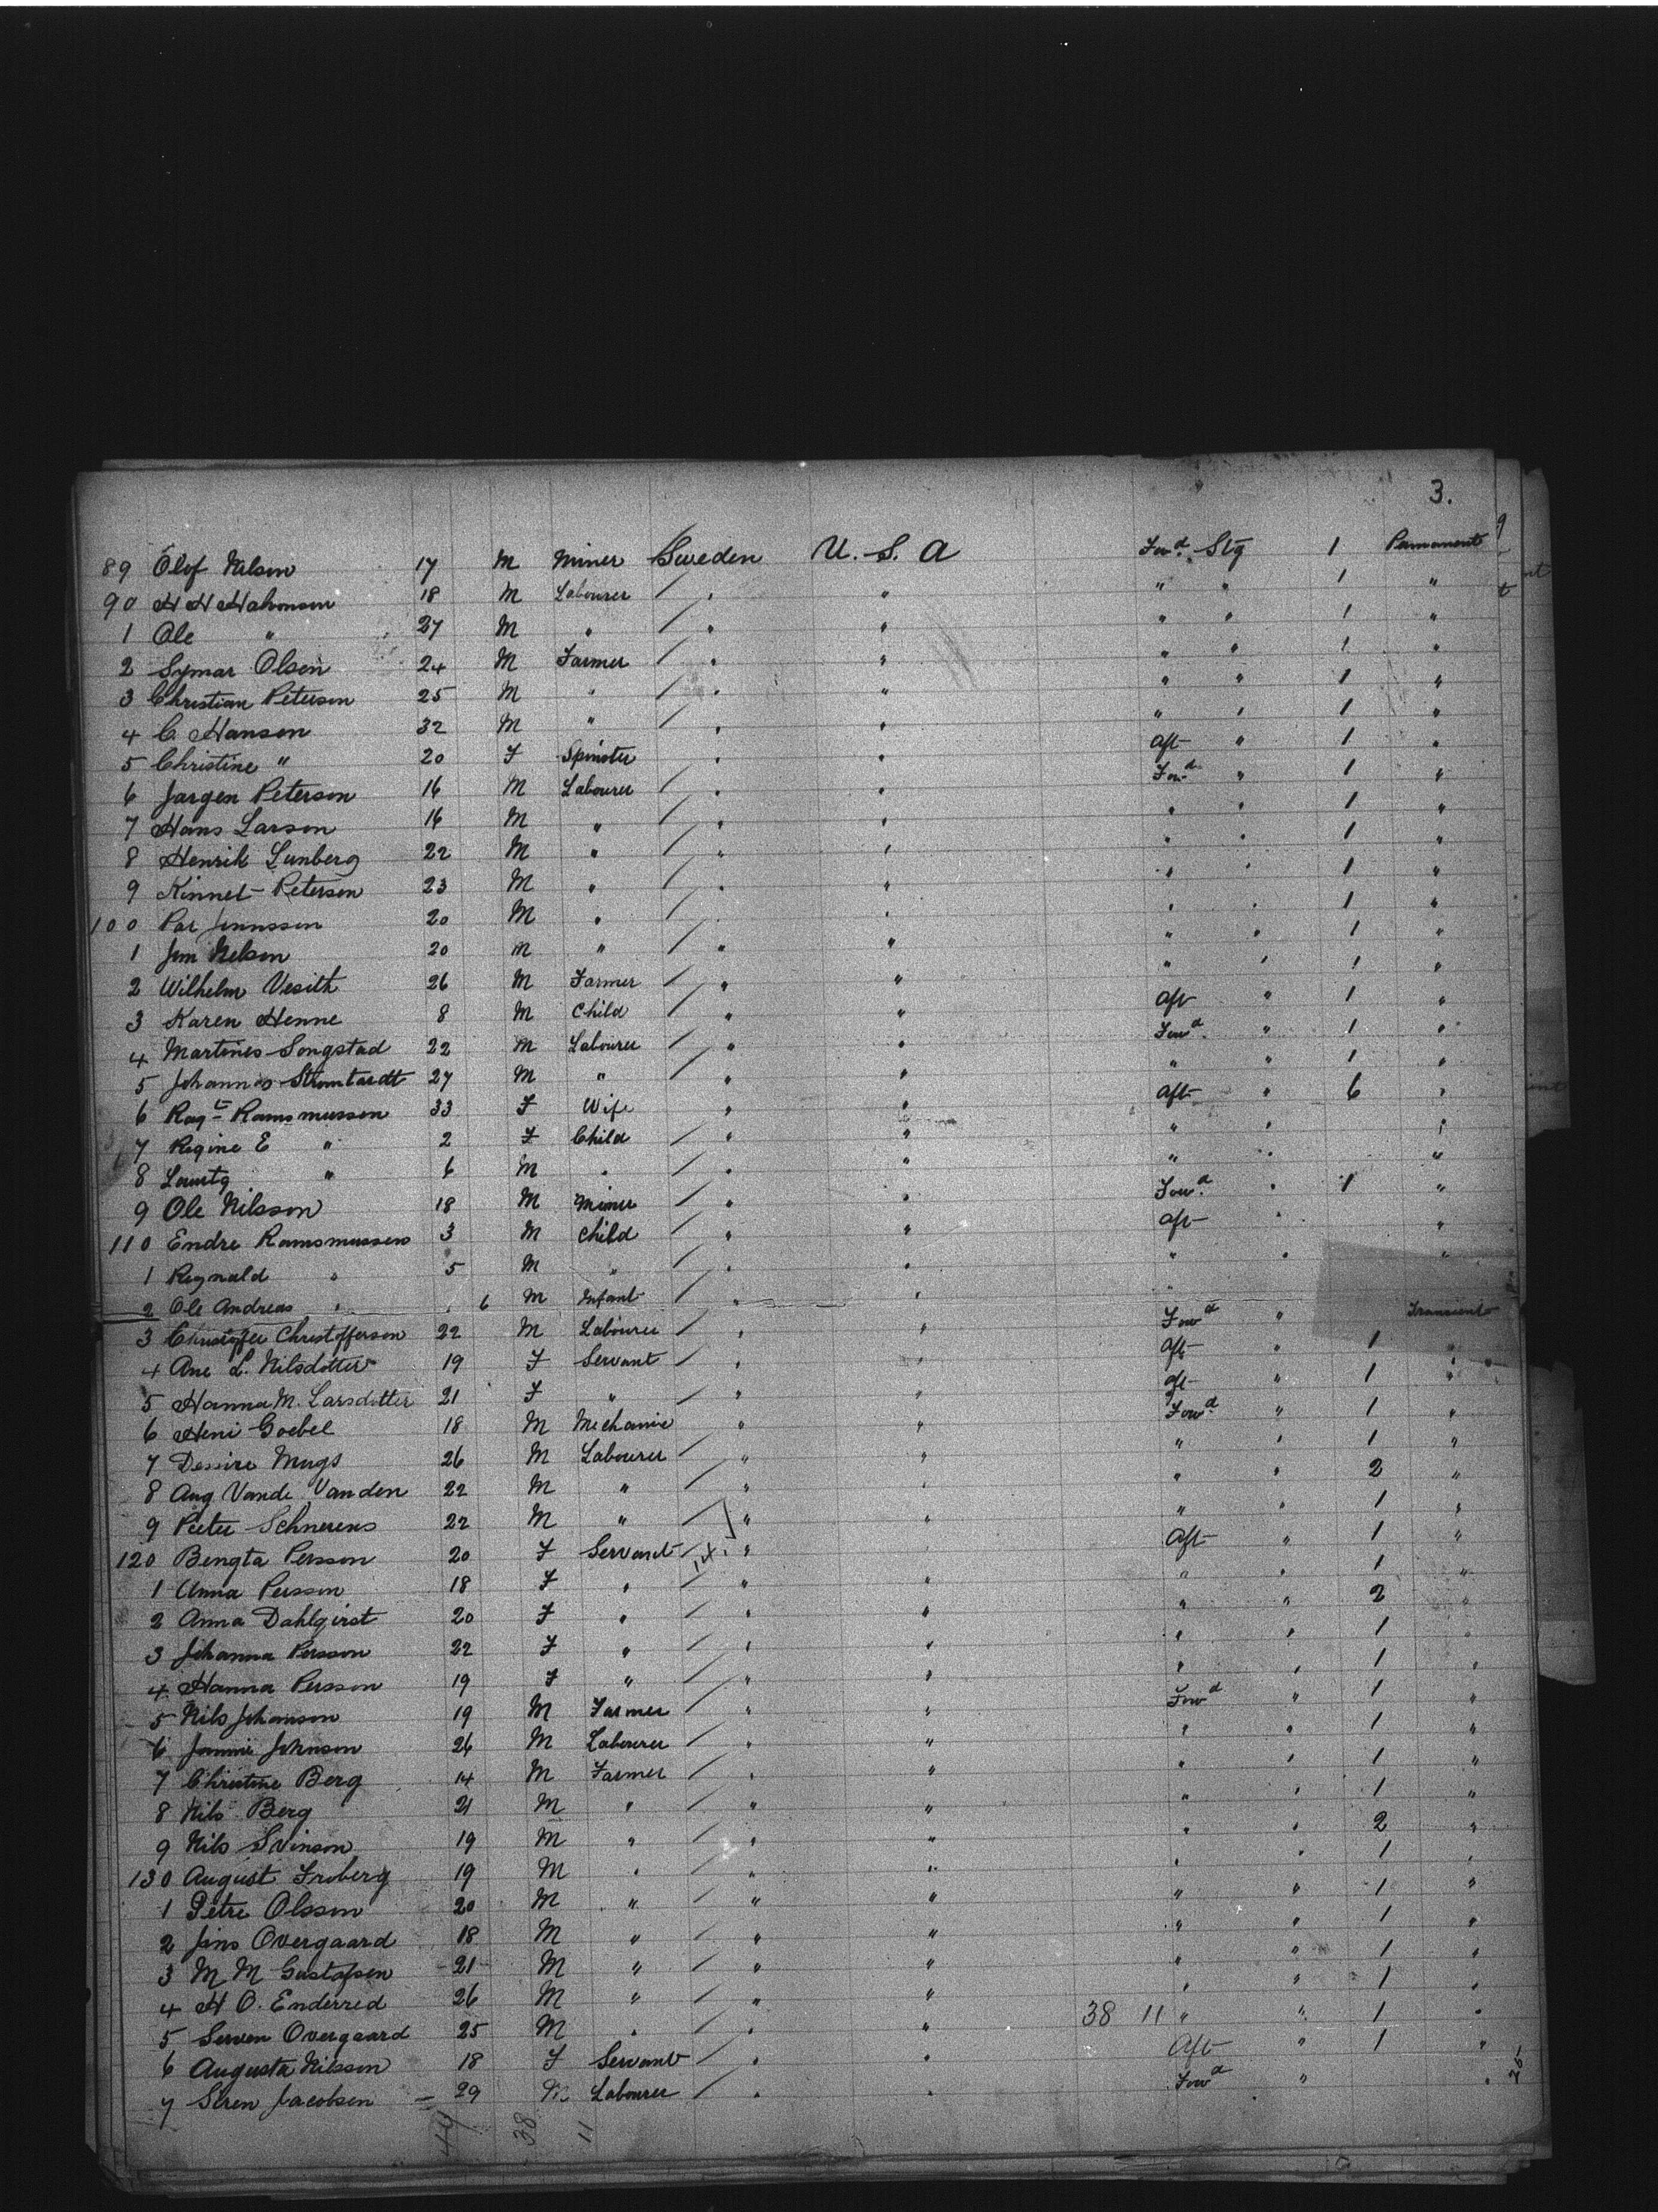 3.
89 Olof Nilson 17 M Miner Sweden U. S. A Fowd. Stg 1 Permanent
90 H H Hakonson 18 M Labourer / " " " " 1 "
1 Ole " 27 M " / " " " " 1 "
2 Symar Olsen 24 M Farmer / " " " " 1 "
3 Christian Peterson 25 M " / " " " " 1 "
4 C Hanson 32 M " / " " " " 1 "
5 Christine " 20 F Spinster " " Aft " 1 "
6 Jargen Peterson 16 M Labourer / " " Fowd " 1 "
7 Hans Larson 16 M " / " " " " 1 "
8 Henrik Lunberg 22 M " / " " " " 1 "
9 Kinnet Peterson 23 M " / " " " " 1 "
100 Par Jennsson 20 M " / " " " " 1 "
1 Jem Nelson 20 M " / " " " " 1 "
2 Wilhelm Vesith 26 M Farmer / " " " " 1 "
3 Karen Henne 8 M Child / " " Aft " 1 "
4 Martines Songstad 22 M Labourer / " " Fowd. " 1 "
5 Johannes Stromtardt 27 M " / " " " " 1 "
6 Ragt Ramsmussen 33 F Wife " " Aft " 6 "
7 Regine E " 2 F Child / " " " " "
8 " 6 M " / " " " " "
9 Ole Nilsson 18 M Miner / " " Fowd. " 1 "
110 Endre Ramsmussen 3 M Child / " " Aft " "
1 Reynald " 5 M " / " " " " "
2 Ole Andreas " 6 M Infant / " " "
3 Christoffer Christofferson 22 M Labourer / " " Fowd " Transient
4 Ane L. Nilsdotter 19 F Servant / " " Aft " 1 "
5 Hanna M. Larsdotter 21 F " / " " Aft " 1 "
6 Heni Goebel 18 M Mechanic " " Fowd " 1 "
7 Desire Mugs 26 M Labourer / " " " " 1 "
8 Aug Vande Vanden 22 M " / " " " " 2 "
9 Pieter Schnerens 22 M " / " " " " 1 "
120 Bengta Persson 20 F Servant / " " Aft " 1 "
1 Anna Persson 18 F " / " " " " 1 "
2 Anna Dahlqirst 20 F " / " " " " 2 "
3 Johanna Persson 22 F " / " " " " 1 "
4 Hanna Persson 19 F " / " " " " 1 "
5 Nils Johanson 19 M Farmer / " " Fowd " 1 "
6 Jannie Johnson 26 M Labourer / " " " " 1 "
7 Christine Berg 14 M Farmer / " " " " 1 "
8 Nils Berg 21 M " / " " " " 1 "
9 Nils Svinson 19 M " / " " " " 2 "
130 August Froberg 19 M " / " " " " 1 "
1 Petre Olsson 20 M " / " " " " 1 "
2 Jens Overgaard 18 M " / " " " " 1 "
3 M M Gustafsen 21 M " / " " " " 1 "
4 H O. Enderred 26 M " / " " " " 1 "
5 Serven Overgaard 25 M " / " " 38 11 " " 1 "
6 Augusta Nilsson 18 F Servant / " " Aft " 1 "
7 Seren Jacobsen 29 M Labourer / " " Fowd " "
38 11